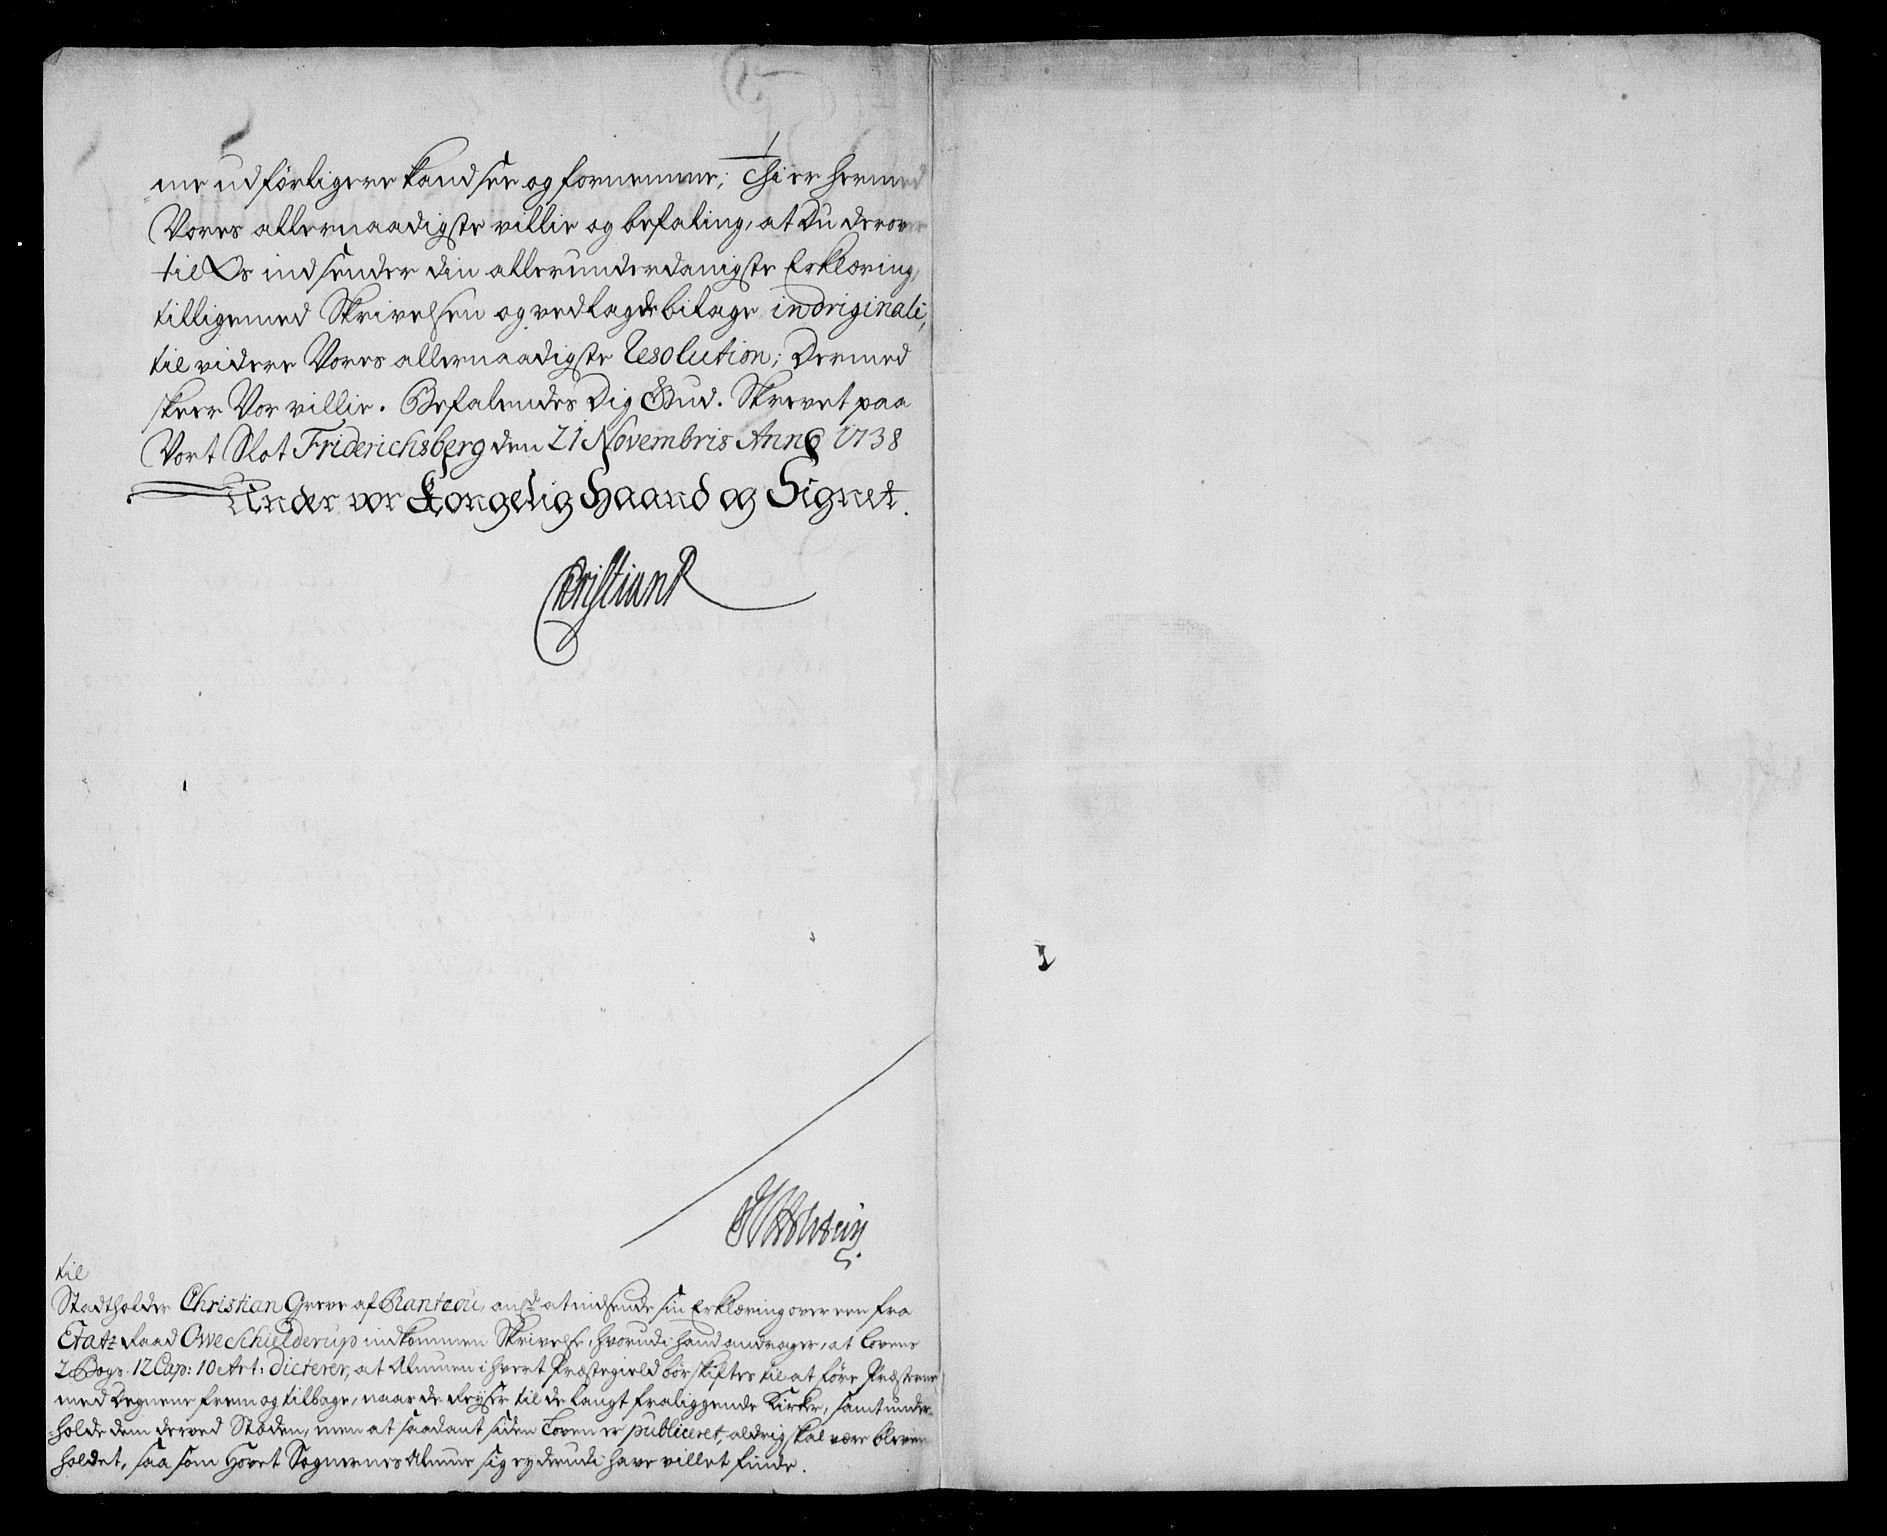 me udförligere kand see og fornemme; Thi er hermed
Vores allernaadigste villie og befaling, at Du derover
til Os indsender din allerunderdanigste Erklæring,
tilligemed Skrivelsen og vedlagde bilage in originali,
til videre Vores allernaadigste Resolution; Dermed
skeer Vor villie. Befalendes Dig Gud. Skrevet paa
Vort Slot Friderichsberg den 21 Novembris Anno 1738
Under vor Kongelig Haand og Signet.
Christian R
til
Stadtholder Christian Greve af Rantzou, ang. at indsende sin Erklæring over een fra
Etatz Raad Owe Schielderup indkommen Skrivelse, hvorudi hand andrager, at Lovens
2 Bogs 12 Cap: 10 Art: dicterer, at Almuen i hvert Præstegield bör skiftes til at före Præsterne
med Degnene frem og tilbage, naar de Reyser til de langt fraliggende Kirker, samt under-
holde dem derved Stæden, men at saadant siden Loven er publiceret, aldrig skal være bleven
holdet, saa som Hovet Sognernes Almue sig ey derudi have villet finde.